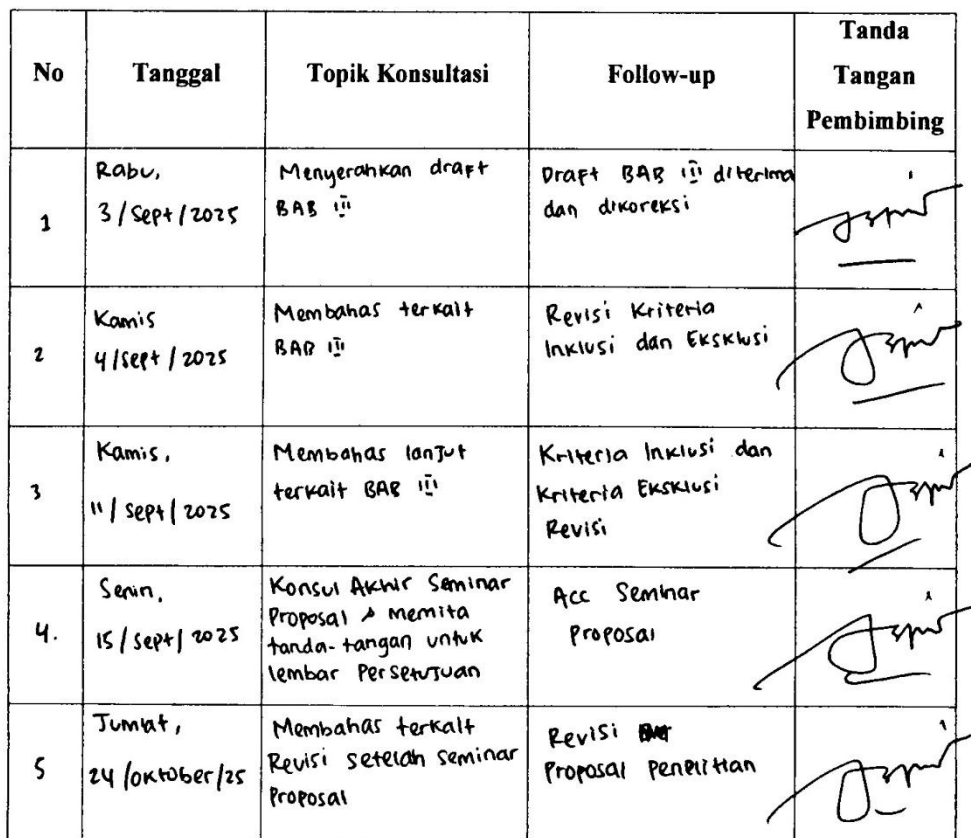 No Tanggal Topik Konsultasi Follow-up Tanda Tangan Pembimbing
1
Rabu,
3/Sept/2025
Menyerahkan draft
BAB III
Draft BAB III diterima
dan dikoreksi
2
Kamis
4/Sept/2025
Membahas terkait
BAB III
Revisi Kriteria
Inklusi dan Eksklusi
3
Kamis,
11/Sept/2025
Membahas lanjut
terkait BAB III
Kriteria Inklusi dan
Kriteria Eksklusi
Revisi
4.
Senin,
15/Sept/2025
Konsul Akhir Seminar
Proposal & memita
tanda-tangan untuk
lembar Persetujuan
Acc Seminar
Proposal
5
Jumat,
24/Oktober/25
Membahas terkait
Revisi setelah seminar
Proposal
Revisi
Proposal Penelitian